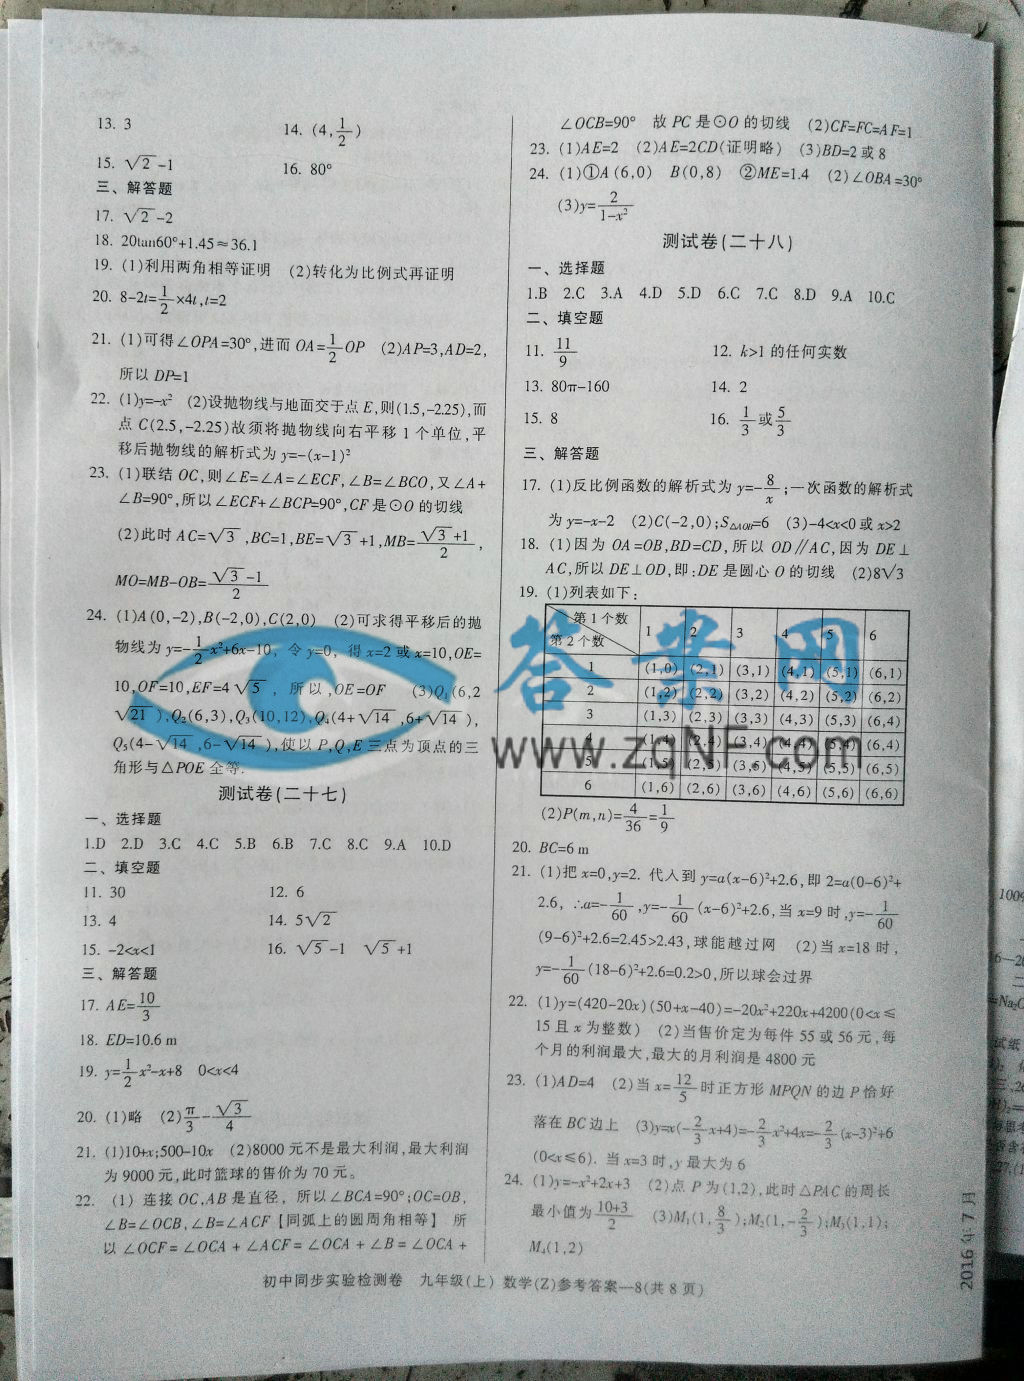 13. 3
14. (4, 1/2)
15. √2 -1
16. 80°
三、解答题
17. √2 -2
18. 20tan60°+1.45≈36.1
19. (1)利用两角相等证明 (2)转化为比例式再证明
20. 8-2t=1/2×4t,t=2
21. (1)可得∠OPA=30°,进而OA=1/2OP (2)AP=3,AD=2,
所以DP=1
22. (1)y=-x² (2)设抛物线与地面交于点E,则(1.5,-2.25),而
点C(2.5,-2.25)故须将抛物线向右平移1个单位,平
移后抛物线的解析式为y=-(x-1)²
23. (1)联结OC,则∠E=∠A=∠ECF,∠B=∠BCO,又∠A+
∠B=90°,所以∠ECF+∠BCP=90°,CF是⊙O的切线
(2)此时AC=√3,BC=1,BE=√3+1,MB=(√3+1)/2,
MO=MB-OB=(√3-1)/2
24. (1)A(0,-2),B(-2,0),C(2,0) (2)可求得平移后的抛
物线为y=-1/2x²+6x-10, 令y=0, 得x=2或x=10,OE=
10,OF=10,EF=4√5, 所以,OE=OF (3)Q₁(6,2
√21),Q₂(6,3),Q₃(10,12),Q₄(4+√14,6+√14),
Q₅(4-√14,6-√14),使以P,Q,E三点为顶点的三
角形与△POE全等.
测试卷(二十七)
一、选择题
1.D 2.D 3.C 4.C 5.B 6.B 7.C 8.C 9.A 10.D
二、填空题
11. 30
12. 6
13. 4
14. 5√2
15. -2<x<1
16. √5-1 √5+1
三、解答题
17. AE=10/3
18. ED=10.6 m
19. y=1/2x²-x+8 0<x<4
20. (1)略 (2)π/3-√3/4
21. (1)10+x;500-10x (2)8000元不是最大利润,最大利润
为9000元,此时篮球的售价为70元。
22. (1) 连接OC,AB是直径, 所以∠BCA=90°;OC=OB,
∠B=∠OCB,∠B=∠ACF【同弧上的圆周角相等】 所
以∠OCF=∠OCA+∠ACF=∠OCA+∠B=∠OCA+
∠OCB=90° 故PC是⊙O的切线 (2)CF=FC=AF=1
23. (1)AE=2 (2)AE=2CD(证明略) (3)BD=2或8
24. (1)①A(6,0) B(0,8) ②ME=1.4 (2)∠OBA=30°
(3)y=2/(1-x²)
测试卷(二十八)
一、选择题
1.B 2.C 3.A 4.D 5.D 6.C 7.C 8.D 9.A 10.C
二、填空题
11. 11/9
12. k>1的任何实数
13. 80π-160
14. 2
15. 8
16. 1/3或5/3
三、解答题
17. (1)反比例函数的解析式为y=-8/x;一次函数的解析式
为y=-x-2 (2)C(-2,0);S△AOB=6 (3)-4<x<0或x>2
18. (1)因为OA=OB,BD=CD,所以OD∥AC,因为DE⊥
AC,所以DE⊥OD,即:DE是圆心O的切线 (2)8√3
19. (1)列表如下:
第1个数 1 2 3 4 5 6
第2个数
1 (1,0) (2,1) (3,1) (4,1) (5,1) (6,1)
2 (1,2) (2,2) (3,2) (4,2) (5,2) (6,2)
3 (1,3) (2,3) (3,3) (4,3) (5,3) (6,4)
4 (1,4) (2,4) (3,4) (4,4) (5,4) (6,4)
5 (1,5) (2,5) (3,5) (4,5) (5,5) (6,5)
6 (1,6) (2,6) (3,6) (4,6) (5,6) (6,6)
(2)P(m,n)=4/36=1/9
20. BC=6 m
21. (1)把x=0,y=2. 代入到y=a(x-6)²+2.6,即2=a(0-6)²+
2.6, ∴a=-1/60,y=-1/60(x-6)²+2.6,当x=9时,y=-1/60
(9-6)²+2.6=2.45>2.43,球能越过网 (2)当x=18时,
y=-1/60(18-6)²+2.6=0.2>0,所以球会过界
22. (1)y=(420-20x)(50+x-40)=-20x²+220x+4200(0<x≤
15且x为整数) (2)当售价定为每件55或56元,每
个月的利润最大,最大的月利润是4800元
23. (1)AD=4 (2)当x=12/5时正方形MPQN的边P恰好
落在BC边上 (3)y=x(-2/3x+4)=-2/3x²+4x=-2/3(x-3)²+6
(0<x≤6). 当x=3时,y最大为6
24. (1)y=-x²+2x+3 (2)点P为(1,2),此时△PAC的周长
最小值为(10+3)/2 (3)M₁(1,8/3);M₂(1,-2/3);M₃(1,1);
M₄(1,2)
初中同步实验检测卷 九年级(上) 数学(Z)参考答案—8(共8页)
2016年7月
答案网
www.zqNF.com
1009
=Na₂O
试纸
27.(1